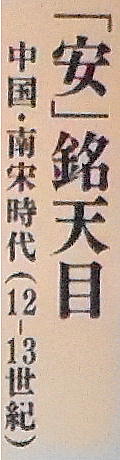 「安」銘天目
中国・南宋時代（12–13世紀）